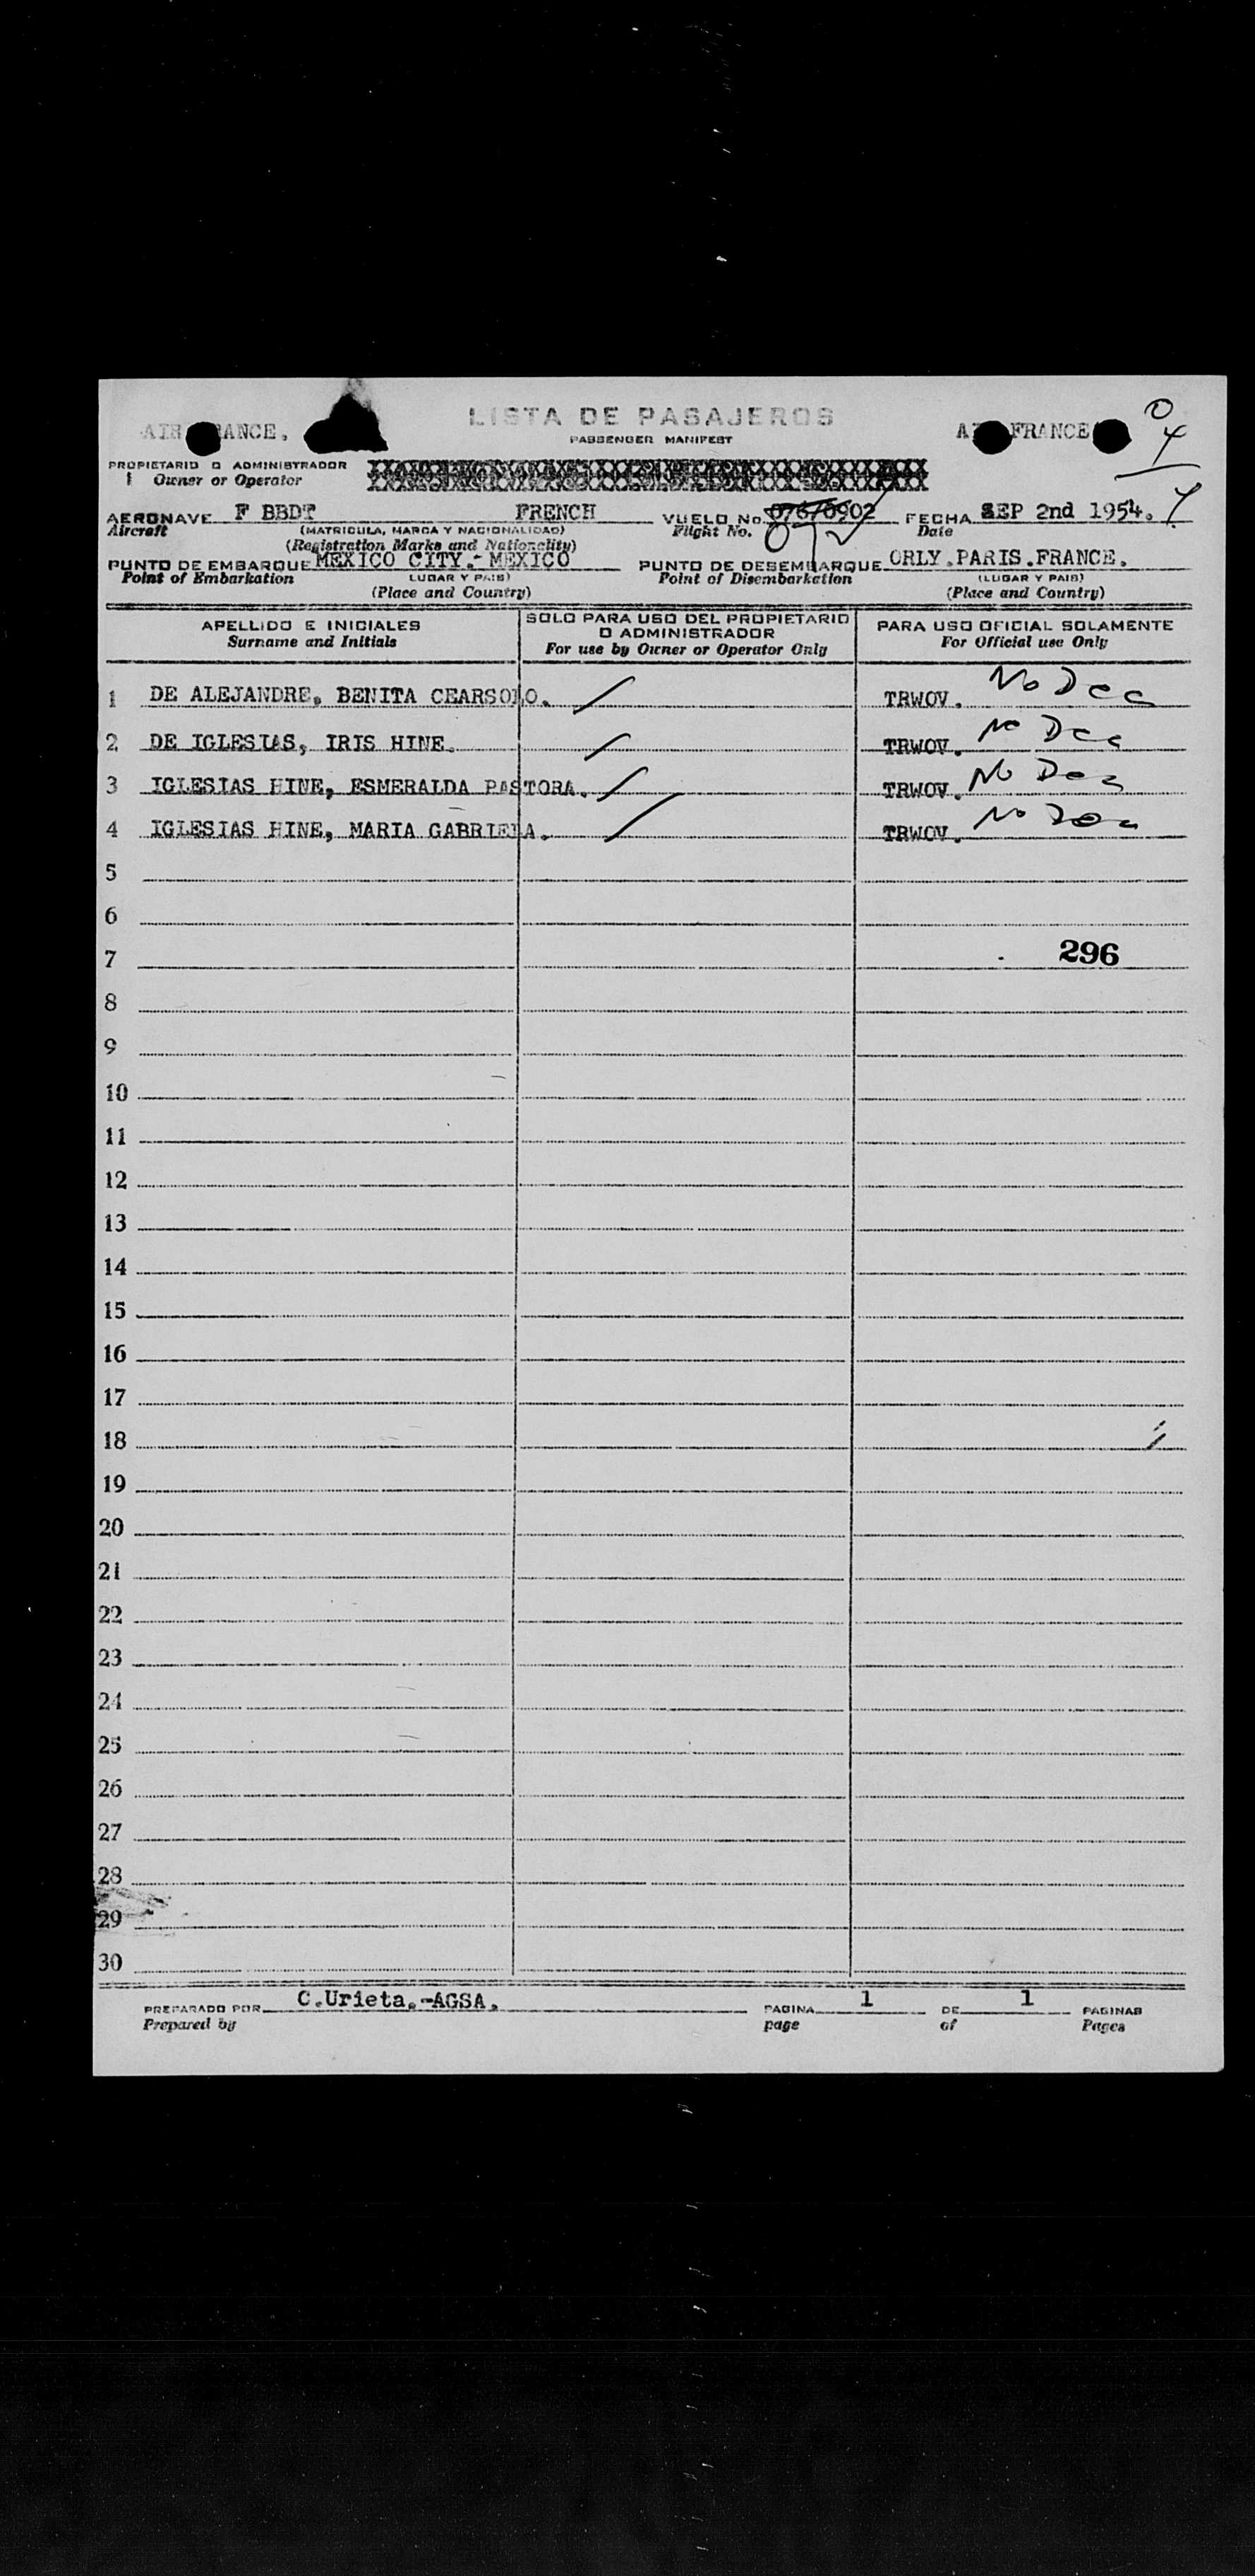 LISTA DE PASAJEROS
PASSENGER MANIFEST
AIR FRANCE.
FRANCE
0
4
PROPIETARIO O ADMINISTRADOR
Owner or Operator
AERONAVE F BBDT FRENCH VUELO No. 076/0902 FECHA SEP 2nd 1954.
Aircraft (MATRICULA, MARCA Y NACIONALIDAD) Flight No. 07 Date
(Registration Marks and Nationality)
PUNTO DE EMBARQUE MEXICO CITY.- MEXICO PUNTO DE DESEMBARQUE ORLY.PARIS.FRANCE.
Point of Embarkation LUGAR Y PAIS) Point of Disembarkation (LUGAR Y PAIS)
(Place and Country) (Place and Country)
APELLIDO E INICIALES SOLO PARA USO DEL PROPIETARIO PARA USO OFICIAL SOLAMENTE
Surname and Initials O ADMINISTRADOR For Official use Only
For use by Owner or Operator Only
1 DE ALEJANDRE, BENITA CEARSOLO. TRWOV. No Dec
2 DE IGLESIAS, IRIS HINE. TRWOV. No Dec
3 IGLESIAS HINE, ESMERALDA PASTORA. TRWOV. No Dec
4 IGLESIAS HINE, MARIA GABRIELA. TRWOV. No Dec
5
6
7 296
8
9
10
11
12
13
14
15
16
17
18
19
20
21
22
23
24
25
26
27
28
29
30
PREPARADO POR C.Urieta.-AGSA. PAGINA 1 DE 1 PAGINAS
Prepared by page of Pages